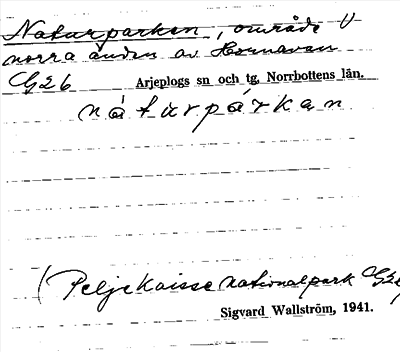 Naturparken, område V
norra änden av Hornavan
G26 Arjeplogs sn och tg, Norrbottens län.
nátʉrpárkan
(Peljekaisse nationalpark G26)
Sigvard Wallström, 1941.